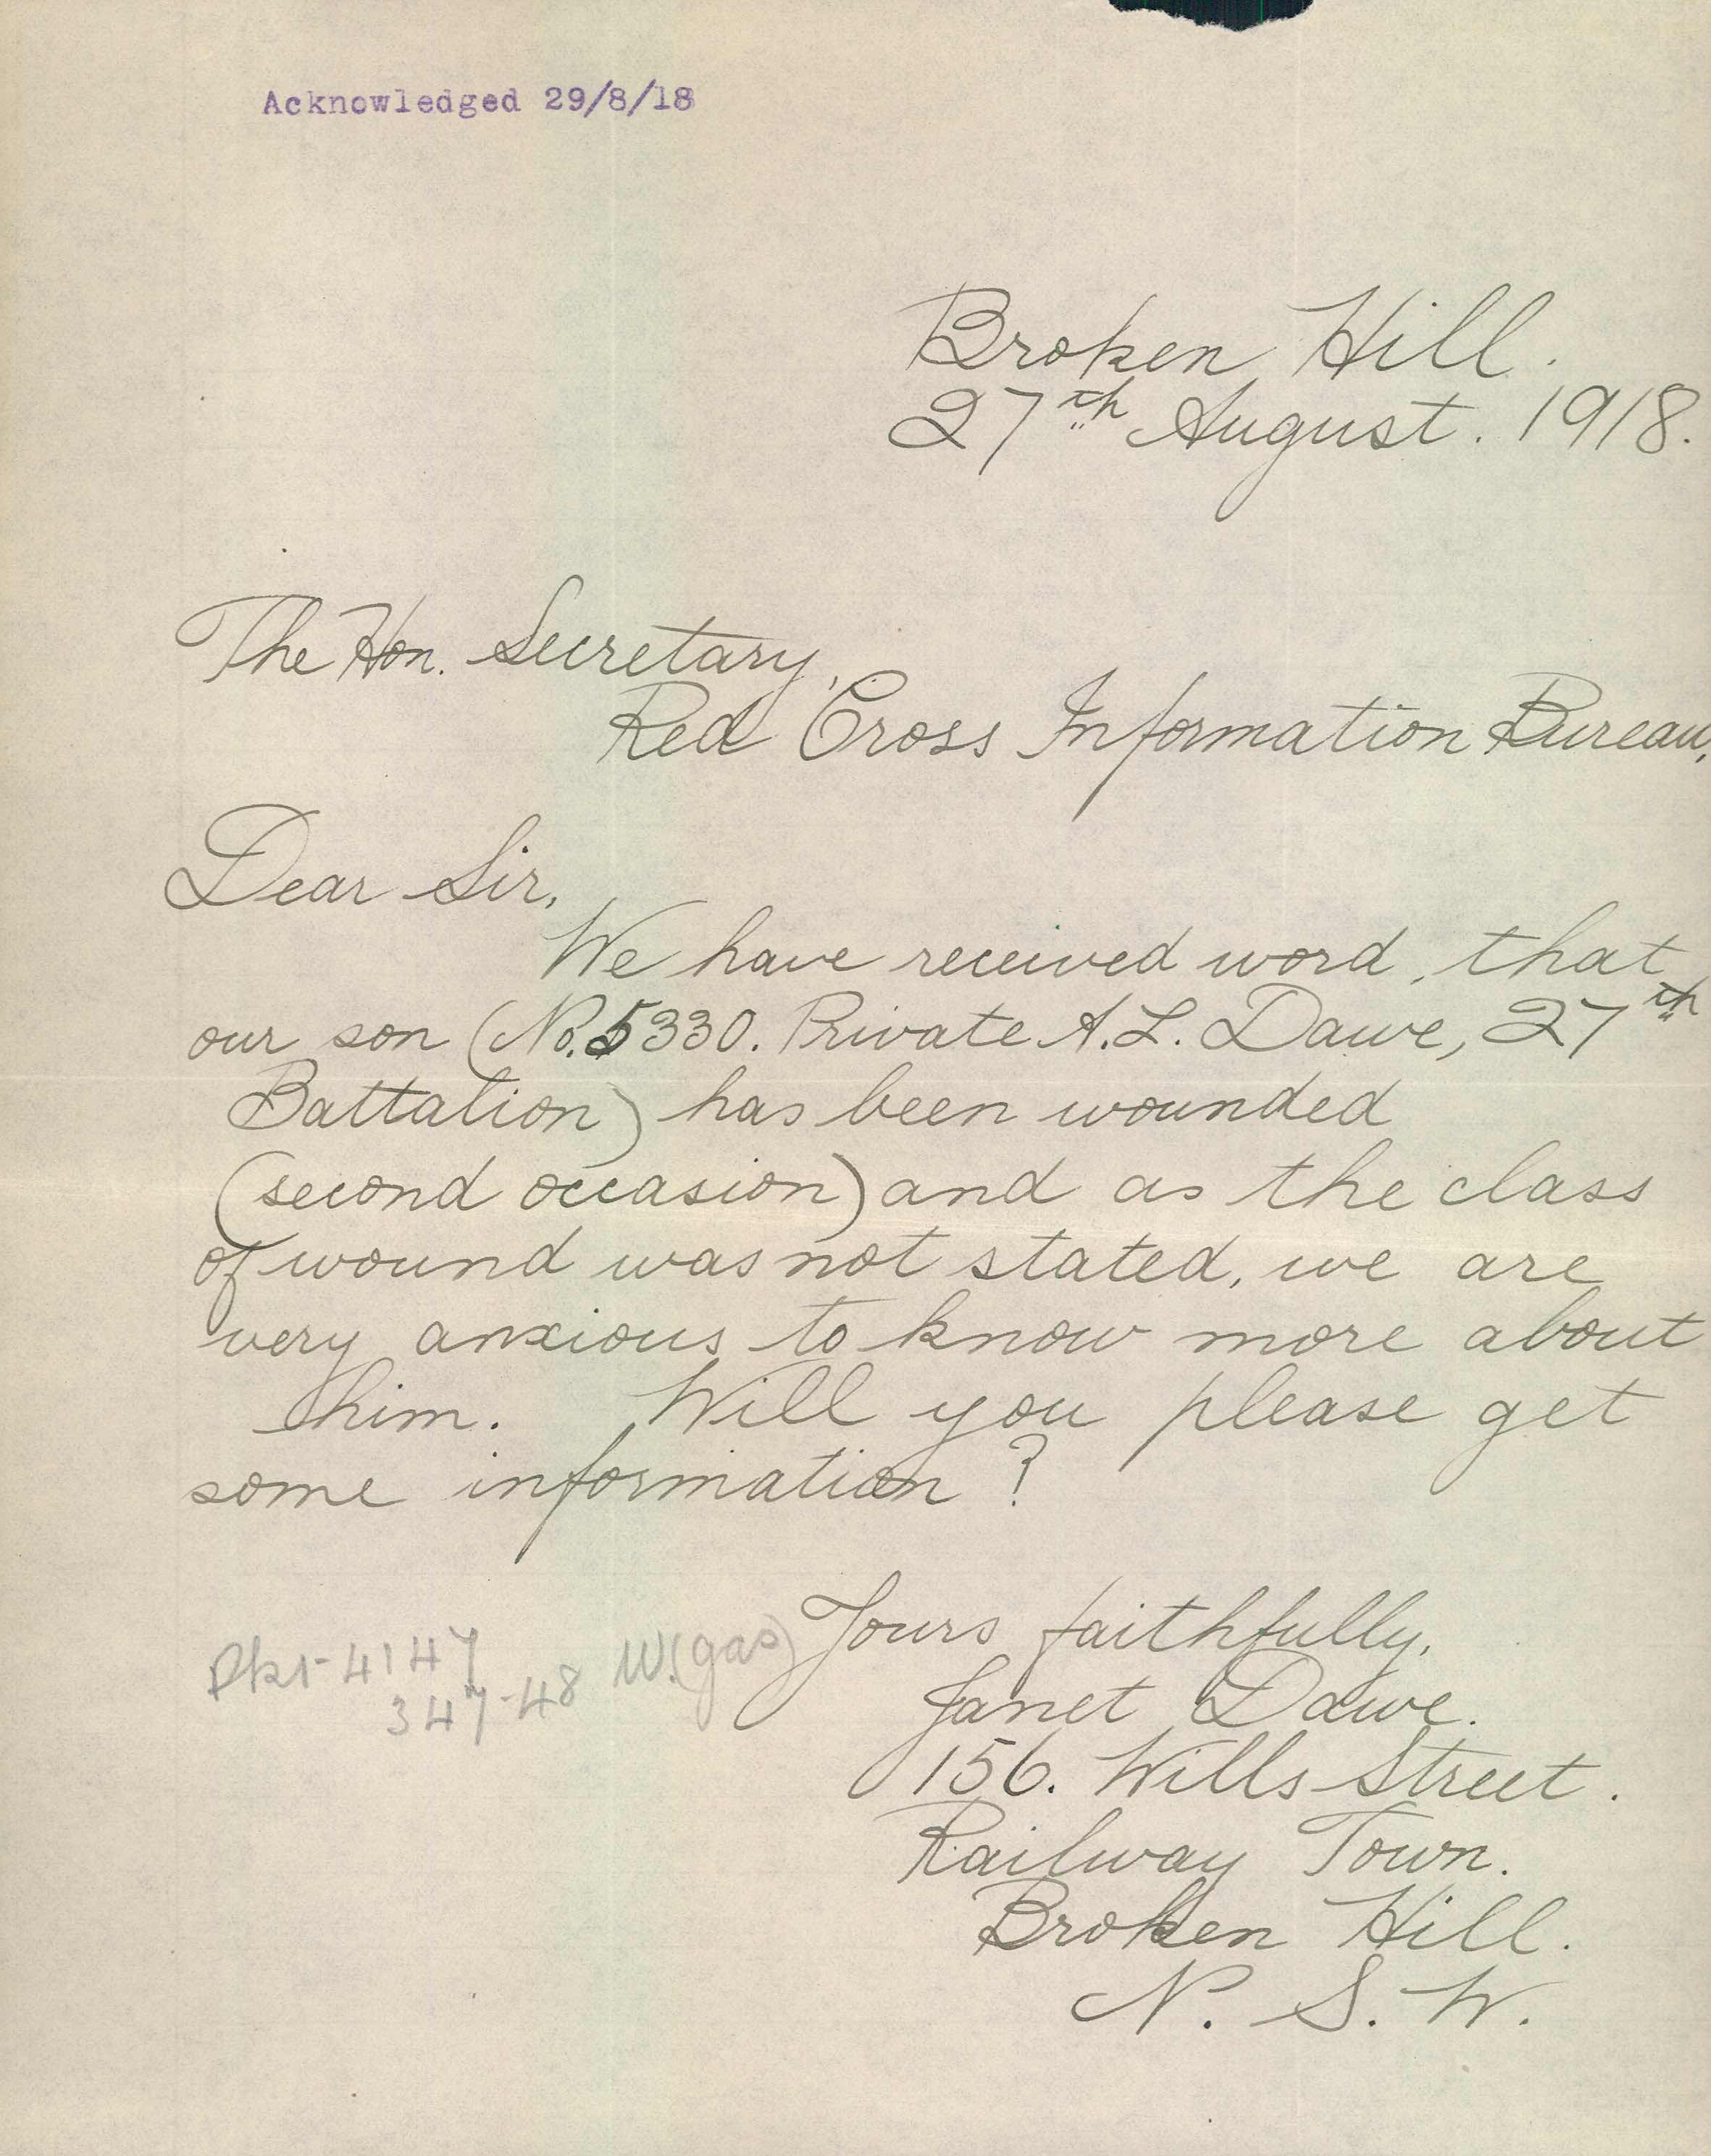 Acknowledged 29/8/18
Broken Hill.
27th August. 1918.
The Hon. Secretary,
Red Cross Information Bureau,
Dear Sir,
We have received word, that
our son (No. 5330. Private A. L. Dawe, 27th
Battalion) has been wounded
(second occasion) and as the class
of wound was not stated, we are
very anxious to know more about
him. Will you please get
some information?
Yours faithfully,
Janet Dawe.
156. Wills Street.
Railway Town.
Broken Hill.
N. S. W.
Pkt 4147 W.(gas)
347-48